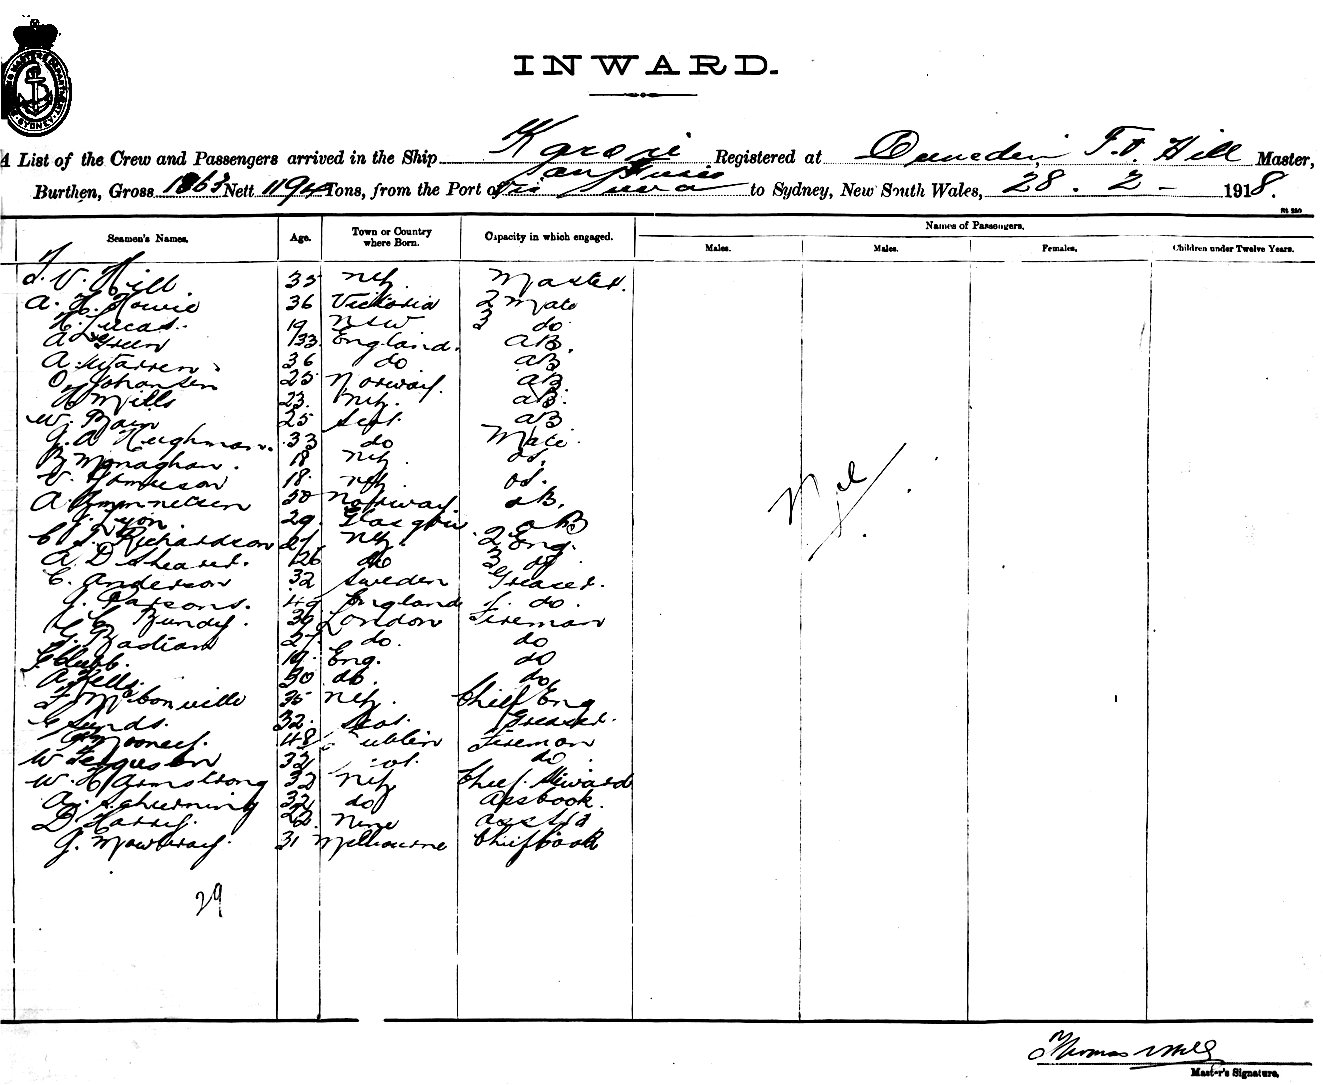 INWARD.
A List of the Crew and Passengers arrived in the Ship Karori Registered at Dunedin, T. V. Hill Master,
Burthen, Gross 1863 Nett 1194 Tons, from the Port of via Suva to Sydney, New South Wales, 28 . 2 - 1918.
Seamen's Names. Age. Town or Country where Born. Capacity in which engaged. Names of Passengers.
Males. Males. Females. Children under Twelve Years.
T. V. Hill 35 NZ. Master.
A. H. Howie 36 Victoria 2 Mate
H. Lucas. 19 NSW 3 do
A Green 33 England. AB.
A. Warren 36 do AB
O. Johansen 25 Norway. AB
H Mills 23. NZ. AB.
W. Bain 25 Scot. AB
J. A. Hughman. 33 do Mate
B Monaghan. 18 NZ OS.
V. Jamieson 18. NZ OS.
A 50 Norway. AB.
J. Lyon. 29. Glasgow AB
C. J. Richardson 27 NZ. 2 Eng.
A. D Shearer. 26 do 3 do
C. Anderson 32 Sweden Greaser.
J. Parsons. 49 England do.
Bundy. 36 London Fireman
G. Bastian 27 do. do
Clubb. 19. Eng. do
A Kells. 30 do. do
F. McBonville 35 NZ. Chief Eng
Sunds. 32. Scot. Greaser.
Mooney. 48 Dublin Fireman
W Ferguson 32 Scot. do
W. H Armstrong 32 NZ Chief Steward
A. 32 do Ass Cook.
D. Harris. 22 Asst Std
J. Mowbray. 31 Melbourne Chief Cook
Nil
29
Thomas V Hill
Master's Signature.